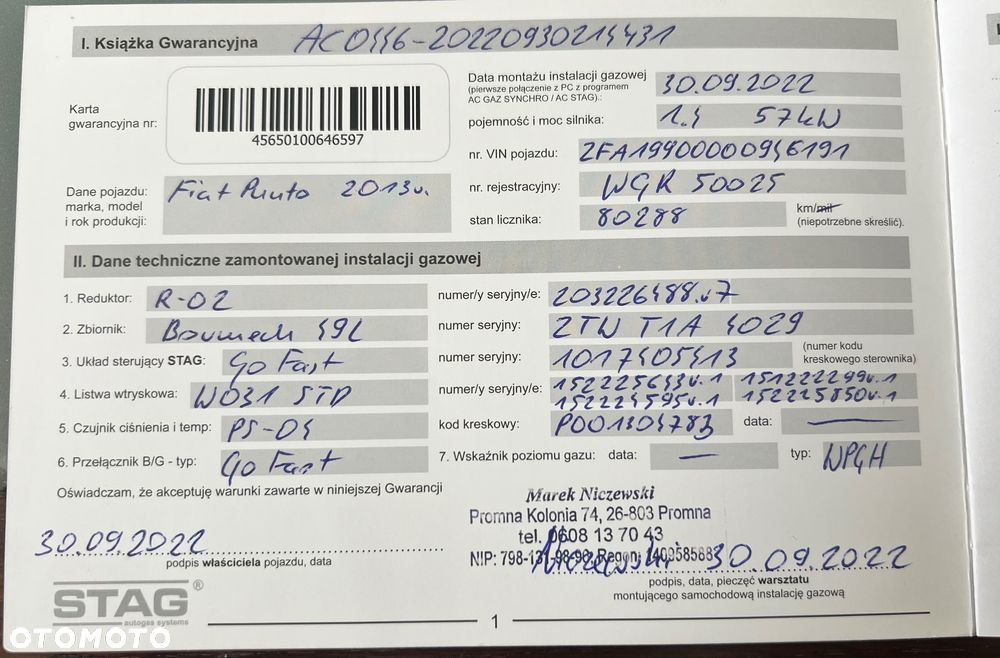 I. Książka Gwarancyjna AC0446-20220930214431
Karta
gwarancyjna nr:
45650100646597
Data montażu instalacji gazowej
(pierwsze połączenie z PC z programem
AC GAZ SYNCHRO / AC STAG).:
30.09.2022
pojemność i moc silnika: 1.4 57kW
nr. VIN pojazdu: ZFA19900000946191
Dane pojazdu:
marka, model
i rok produkcji:
Fiat Punto 2013r.
nr. rejestracyjny: WGR 50025
stan licznika: 80288 km/mil
(niepotrzebne skreślić).
II. Dane techniczne zamontowanej instalacji gazowej
1. Reduktor: R-02 numer/y seryjny/e: 203226488.v7
2. Zbiornik: 49L numer seryjny: 2TW T1A 4029
3. Układ sterujący STAG: Go Fast numer seryjny: 1017405413 (numer kodu
kreskowego sterownika)
4. Listwa wtryskowa: W031 STD numer/y seryjny/e: 152225643v.1 151222299v.1
152224595v.1 152225850v.1
5. Czujnik ciśnienia i temp: PS-04 kod kreskowy: P001304783 data: —
6. Przełącznik B/G - typ: Go Fast 7. Wskaźnik poziomu gazu: data: — typ: WPGH
Oświadczam, że akceptuję warunki zawarte w niniejszej Gwarancji
Marek Niczewski
Promna Kolonia 74, 26-803 Promna
tel. 0608 13 70 43
NIP: 798-131-98-98, Regon:
30.09.2022
30.09.2022
podpis właściciela pojazdu, data
podpis, data, pieczęć warsztatu
montującego samochodową instalację gazową
STAG®
autogas systems
1
OTOMOTO